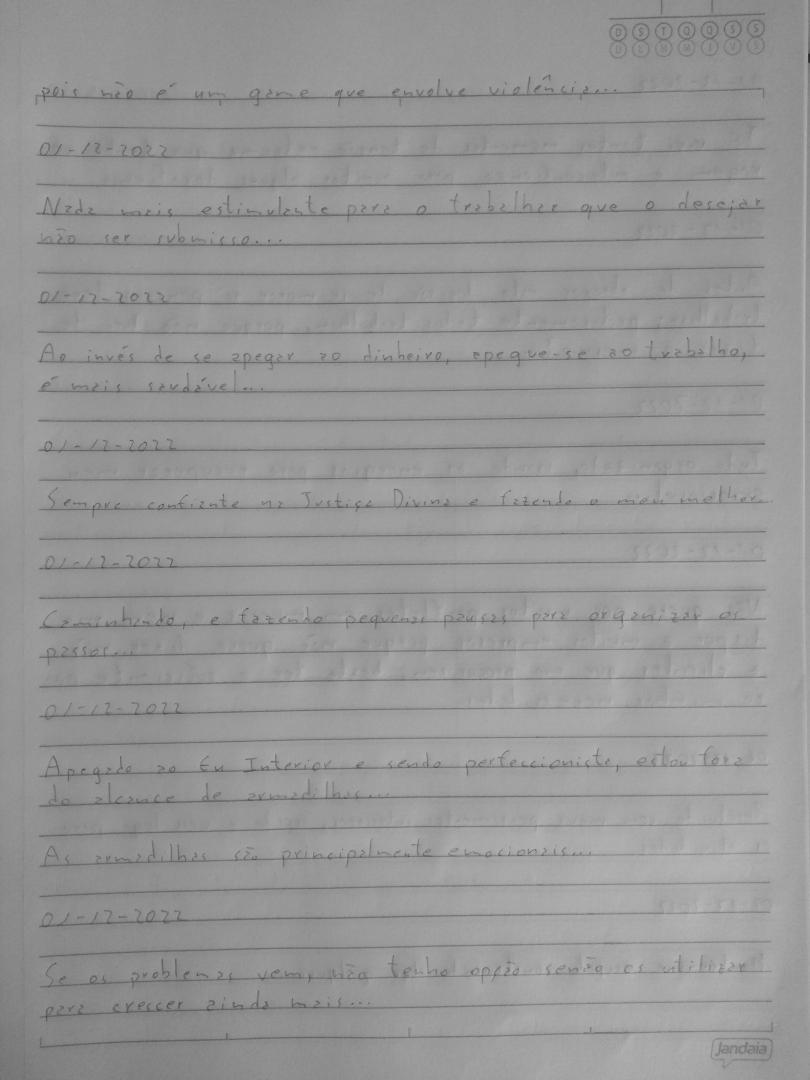 D S T Q Q S S
pois não é um game que envolve violência...
01-12-2022
Nada mais estimulante para o trabalhar que o desejar
não ser submisso...
01-12-2022
Ao invés de se apegar ao dinheiro, apegue-se ao trabalho,
é mais saudável...
01-12-2022
Sempre confiante na Justiça Divina e fazendo o meu melhor...
01-12-2022
Caminhando, e fazendo pequenas pausas para organizar os
passos...
01-12-2022
Apegado ao Eu Interior e sendo perfeccionista, estou fora
do alcance de armadilhas...
As armadilhas são principalmente emocionais...
01-12-2022
Se os problemas vem, não tenho opção senão os utilizar
para crescer ainda mais...
Jandaia